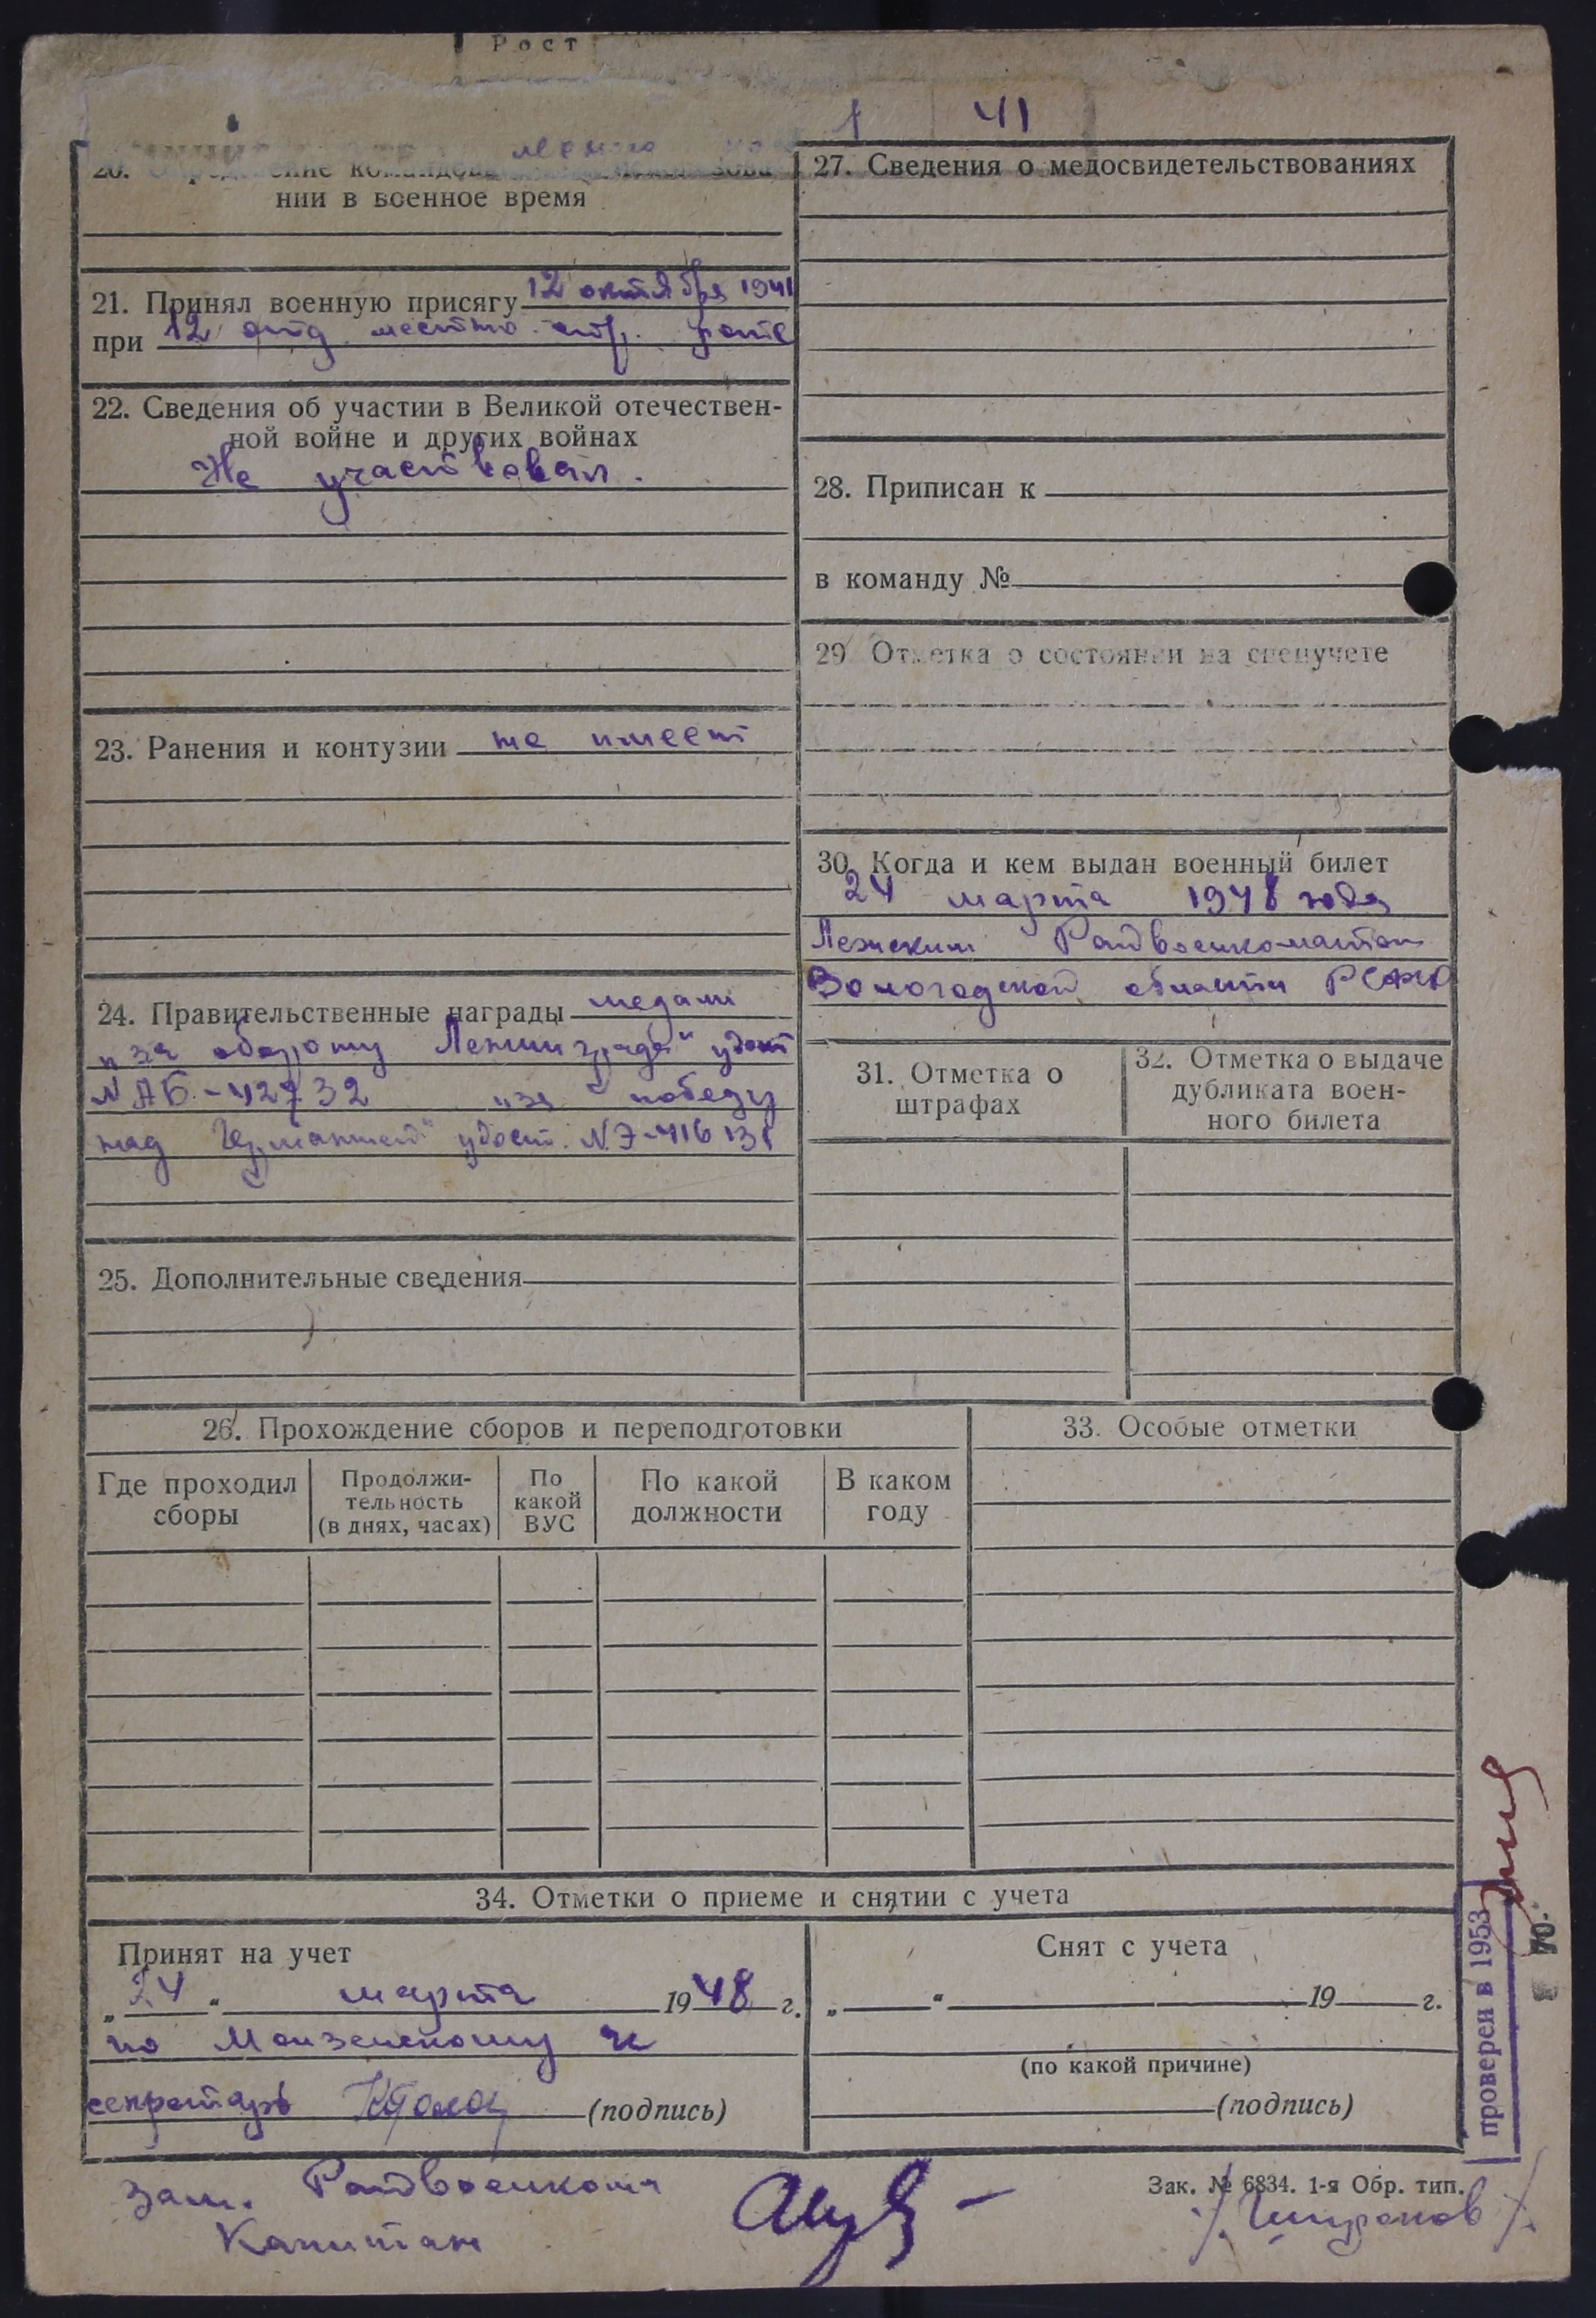 Рост
1 41
нии в военное время
21. Принял военную присягу 12 октября 1941
при 12 отд. местно. стр. роте
22. Сведения об участии в Великой отечествен-
ной войне и других войнах
Не участвовал.
23. Ранения и контузии не имеет
24. Правительственные награды медаль
"за оборону Ленинграда" удост
№ АБ-42732 "за победу
над Германией" удост. № Э-416131
25. Дополнительные сведения
27. Сведения о медосвидетельствованиях
28. Приписан к
в команду №
29 Отметка о состоянии на спецучете
30. Когда и кем выдан военный билет
24 марта 1948 года
Лежским Райвоенкоматом
Вологодской области РСФСР
31. Отметка о
штрафах
32. Отметка о выдаче
дубликата воен-
ного билета
26. Прохождение сборов и переподготовки
Где проходил
сборы
Продолжи-
тельность
(в днях, часах)
По
какой
ВУС
По какой
должности
В каком
году
33. Особые отметки
34. Отметки о приеме и снятии с учета
Принят на учет
„24“ марта 1948 г.
по Монзенскому
секретарь (подпись)
Снят с учета
„ “ 19 г.
(по какой причине)
(подпись)
проверен в 1953
Зам. Райвоенкома
Капитан
Зак. № 6834. 1-я Обр. тип.